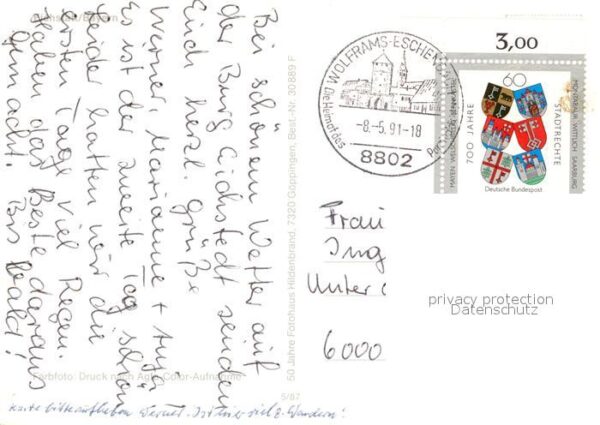 Bei schönem Wetter auf
der Burg Eichstedt senden
Euch herzl. Grüße
Werner, Marianne +
Es ist der zweite Tag schön
leider hatten wir die
ersten Tage viel Regen.
Haben das Beste daraus
gemacht. Bis Bald!
50 Jahre Fotohaus Hildenbrand, 7320 Göppingen Best.-Nr. 30889 F
Farbfoto: Druck nach Agfa-Color-Aufnahme
5/87
Karte bitte aufheben Werner. Ist hier viel z. Wandern!
WOLFRAMS-ESCHEN
Die Heimat des
-8.-5.91-18
8802
3,00
60
700 JAHRE
STADTRECHTE
Deutsche Bundespost
Frau
Ing
Unter
6000
privacy protection
Datenschutz